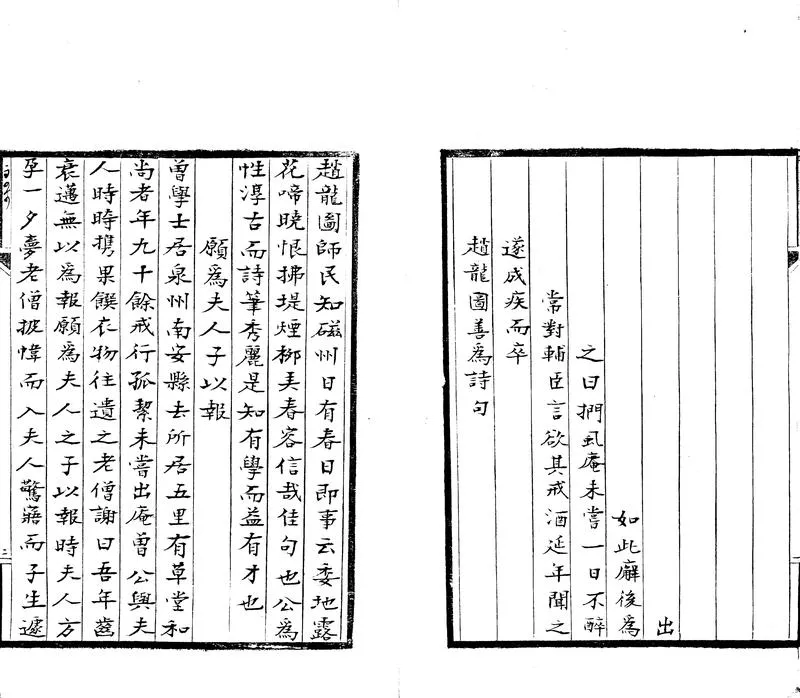 出
如此廨後為
之曰捫虱庵未嘗一日不醉
常對輔臣言欲其戒酒延年聞之
遂成疾而卒
趙龍圖善為詩句
趙龍圖師民知磁州日有春日即事云委地露
花啼曉恨拂堤煙柳美春容信哉佳句也公為
性淳古而詩筆秀麗是知有學而益有才也
願為夫人子以報
曾學士居泉州南安縣去所居五里有草堂和
尚老年九十餘戒行孤潔未嘗出庵曾公與夫
人時時携果饌衣物往遺之老僧謝曰吾年齒
衰邁無以為報願為夫人之子以報時夫人方
孕一夕夢老僧披幃而入夫人驚寤而子生遽